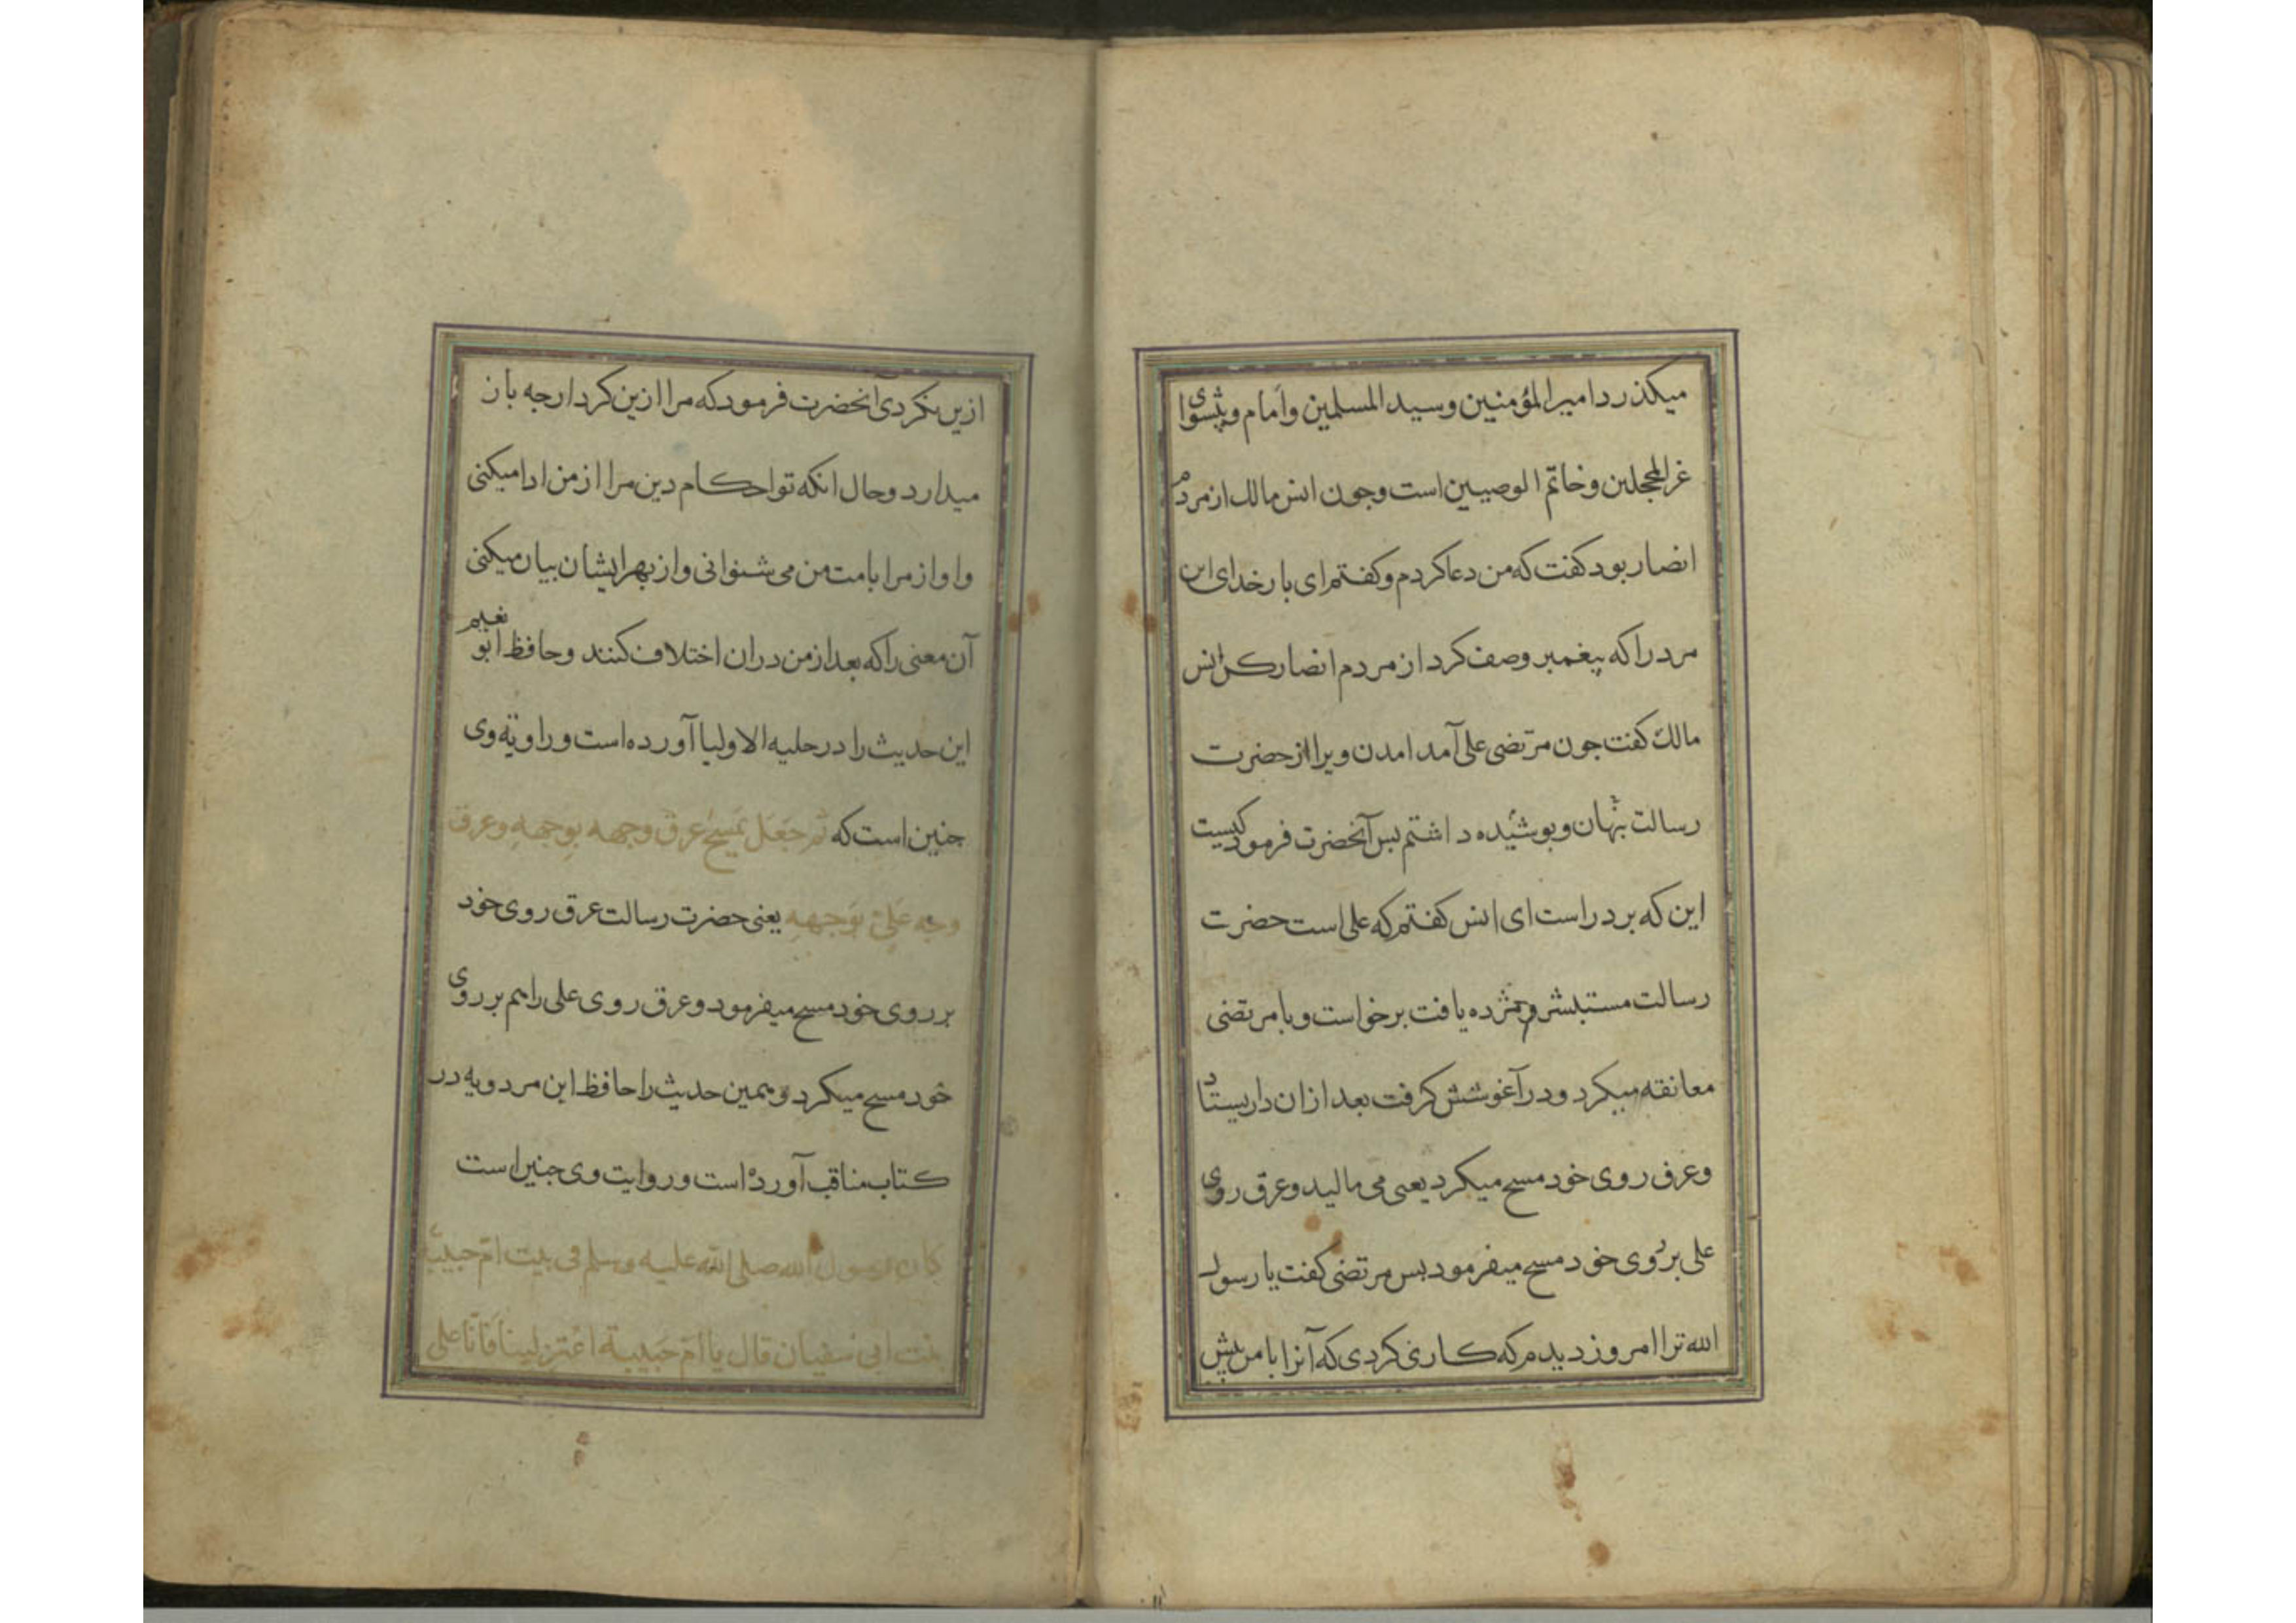 میکذرد امیر المؤمنین وسید المسلمین وامام وپیشوای
غر المحجلین وخاتم الوصیین است وجون انس مالک از مردم
انصار بود کفت که من دعا کردم وکفتم ای بار خدای این
مرد را که پیغمبر وصف کرد از مردم انصار کن انس
مالک کفت جون مرتضی علی آمد امدن ویرا از حضرت
رسالت پنهان وپوشیده داشتم بس آنحضرت فرمود کیست
این که بر در است ای انس کفتم که علی است حضرت
رسالت مستبشر ومژده یافت برخواست وبا مرتضی
معانقه میکرد ودر آغوشش کرفت بعد ازان داربستاد
وعرق روی خود مسح میکرد یعنی می مالید وعرق روی
علی بر روی خود مسح میفرمود بس مرتضی کفت یا رسول
الله ترا امروز دیدم که کاری کردی که آنرا با من پیش
ازین نکردی آنحضرت فرمود که مرا ازین کردار جه باز
میدارد وحال انکه تو احکام دین مرا از من ادا میکنی
واواز مرا بامت من می شنوانی واز بهر ایشان بیان میکنی
آن معنی را که بعد از من دران اختلاف کنند وحافظ ابو نعیم
این حدیث را در حلیه الاولیا آورده است وراویة وی
جنین است که ثم جَعَل یمسَحُ عرق وجهه بِوجههِ وعرق
وجه عَلِیّ بوَجههِ یعنی حضرت رسالت عرق روی خود
بر روی خود مسح میفرمود وعرق روی علی را هم بر روی
خود مسح میکرد وهمین حدیث را حافظ ابن مردویه در
کتاب مناقب آورده است وروایت وی جنین است
کان رسول الله صلی الله علیه وسلم فی بیت امّ حبیبَة
بنت ابی سفیان قال یا امّ حَبیبة اعتزلینا فَانّا علی